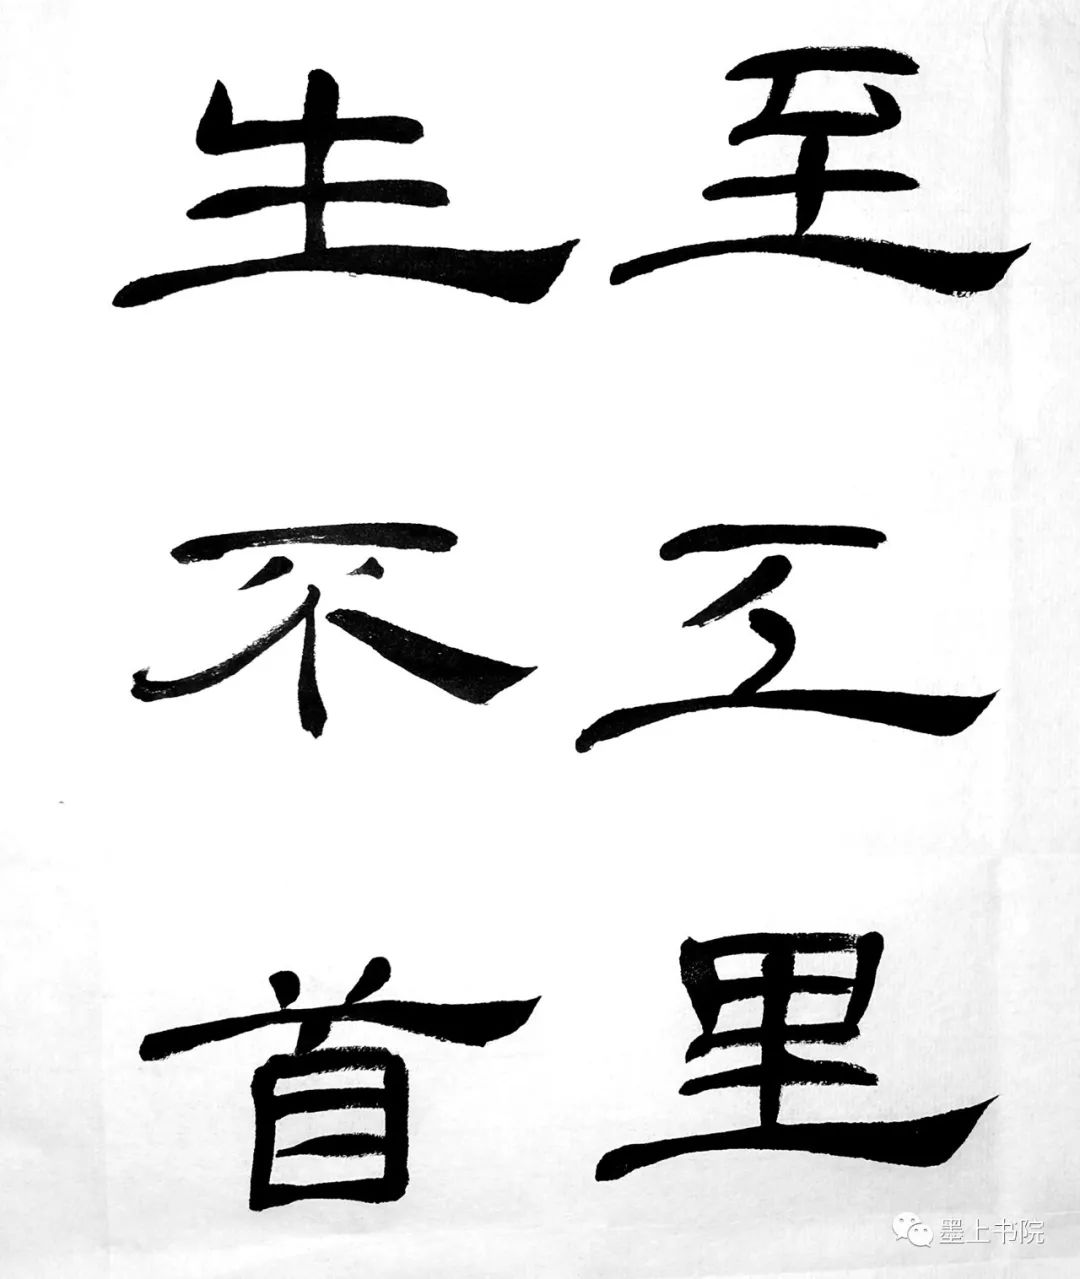 至工里
生不首
墨上书院